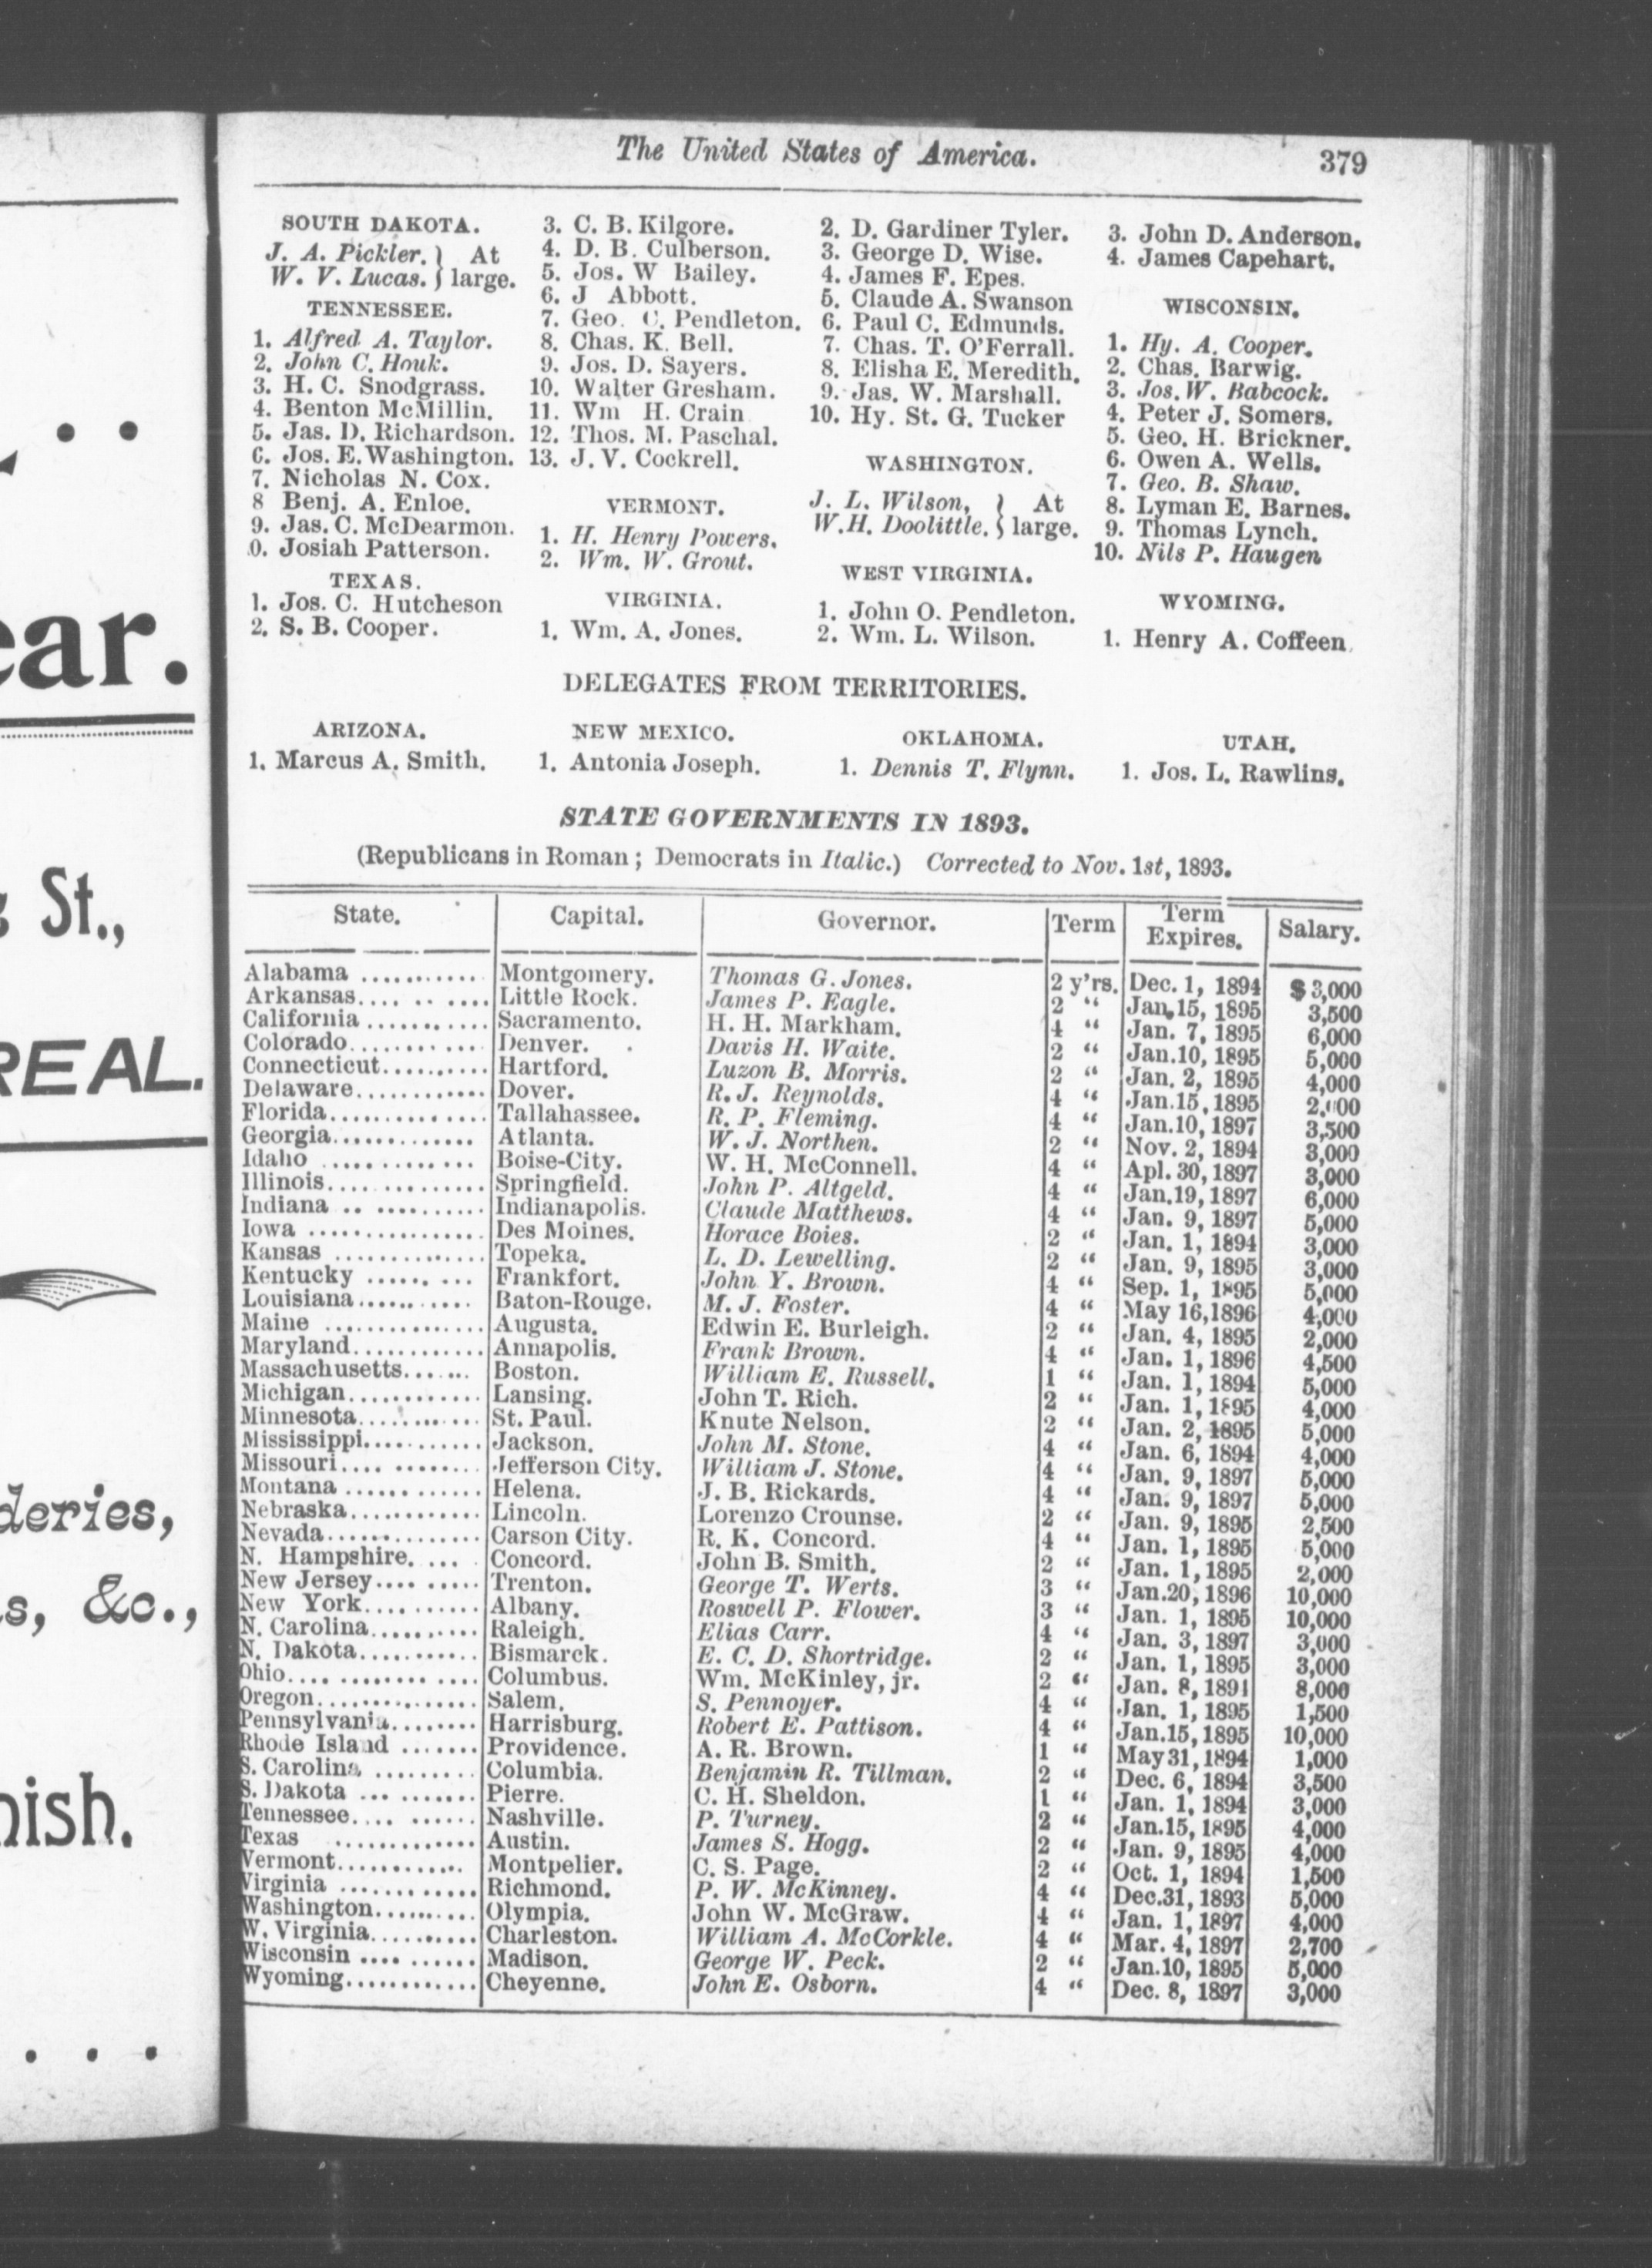 ear.
St.,
REAL.
deries,
s, &c.,
nish.
The United States of America.
379
SOUTH DAKOTA.
J. A. Pickler. } At
W. V. Lucas. } large.
TENNESSEE.
1. Alfred A. Taylor.
2. John C. Houk.
3. H. C. Snodgrass.
4. Benton McMillin.
5. Jas. D. Richardson.
6. Jos. E. Washington.
7. Nicholas N. Cox.
8 Benj. A. Enloe.
9. Jas. C. McDearmon.
0. Josiah Patterson.
TEXAS.
1. Jos. C. Hutcheson
2. S. B. Cooper.
3. C. B. Kilgore.
4. D. B. Culberson.
5. Jos. W Bailey.
6. J Abbott.
7. Geo. C. Pendleton.
8. Chas. K. Bell.
9. Jos. D. Sayers.
10. Walter Gresham.
11. Wm H. Crain
12. Thos. M. Paschal.
13. J. V. Cockrell.
VERMONT.
1. H. Henry Powers.
2. Wm. W. Grout.
VIRGINIA.
1. Wm. A. Jones.
2. D. Gardiner Tyler.
3. George D. Wise.
4. James F. Epes.
5. Claude A. Swanson
6. Paul C. Edmunds.
7. Chas. T. O'Ferrall.
8. Elisha E. Meredith.
9. Jas. W. Marshall.
10. Hy. St. G. Tucker
WASHINGTON.
J. L. Wilson, } At
W.H. Doolittle. } large.
WEST VIRGINIA.
1. John O. Pendleton.
2. Wm. L. Wilson.
3. John D. Anderson.
4. James Capehart.
WISCONSIN.
1. Hy. A. Cooper.
2. Chas. Barwig.
3. Jos. W. Babcock.
4. Peter J. Somers.
5. Geo. H. Brickner.
6. Owen A. Wells.
7. Geo. B. Shaw.
8. Lyman E. Barnes.
9. Thomas Lynch.
10. Nils P. Haugen
WYOMING.
1. Henry A. Coffeen.
DELEGATES FROM TERRITORIES.
ARIZONA.
1. Marcus A. Smith.
NEW MEXICO.
1. Antonia Joseph.
OKLAHOMA.
1. Dennis T. Flynn.
UTAH.
1. Jos. L. Rawlins.
STATE GOVERNMENTS IN 1893.
(Republicans in Roman; Democrats in Italic.) Corrected to Nov. 1st, 1893.
State. Capital. Governor. Term Term Expires. Salary.
Alabama ............ Montgomery. Thomas G. Jones. 2 y'rs. Dec. 1, 1894 $3,000
Arkansas.... .. .... Little Rock. James P. Eagle. 2 " Jan. 15, 1895 3,500
California ............ Sacramento. H. H. Markham. 4 " Jan. 7, 1895 6,000
Colorado............. Denver. Davis H. Waite. 2 " Jan. 10, 1895 5,000
Connecticut.......... Hartford. Luzon B. Morris. 2 " Jan. 2, 1895 4,000
Delaware............ Dover. R. J. Reynolds. 4 " Jan. 15, 1895 2,000
Florida.............. Tallahassee. R. P. Fleming. 4 " Jan. 10, 1897 3,500
Georgia............. Atlanta. W. J. Northen. 2 " Nov. 2, 1894 3,000
Idaho .............. Boise-City. W. H. McConnell. 4 " Apl. 30, 1897 3,000
Illinois.... .......... Springfield. John P. Altgeld. 4 " Jan. 19, 1897 6,000
Indiana .. .......... Indianapolis. Claude Matthews. 4 " Jan. 9, 1897 5,000
Iowa ................ Des Moines. Horace Boies. 2 " Jan. 1, 1894 3,000
Kansas ............. Topeka. L. D. Lewelling. 2 " Jan. 9, 1895 3,000
Kentucky ...... ... Frankfort. John Y. Brown. 4 " Sep. 1, 1895 5,000
Louisiana........... Baton-Rouge. M. J. Foster. 4 " May 16, 1896 4,000
Maine ............... Augusta. Edwin E. Burleigh. 2 " Jan. 4, 1895 2,000
Maryland............ Annapolis. Frank Brown. 4 " Jan. 1, 1896 4,500
Massachusetts....... Boston. William E. Russell. 1 " Jan. 1, 1894 5,000
Michigan............ Lansing. John T. Rich. 2 " Jan. 1, 1895 4,000
Minnesota........... St. Paul. Knute Nelson. 2 " Jan. 2, 1895 5,000
Mississippi........... Jackson. John M. Stone. 4 " Jan. 6, 1894 4,000
Missouri.... ........ Jefferson City. William J. Stone. 4 " Jan. 9, 1897 5,000
Montana ............ Helena. J. B. Rickards. 4 " Jan. 9, 1897 5,000
Nebraska............ Lincoln. Lorenzo Crounse. 2 " Jan. 9, 1895 2,500
Nevada.............. Carson City. R. K. Concord. 4 " Jan. 1, 1895 5,000
N. Hampshire. .... Concord. John B. Smith. 2 " Jan. 1, 1895 2,000
New Jersey.... ..... Trenton. George T. Werts. 3 " Jan. 20, 1896 10,000
New York........... Albany. Roswell P. Flower. 3 " Jan. 1, 1895 10,000
N. Carolina.......... Raleigh. Elias Carr. 4 " Jan. 3, 1897 3,000
N. Dakota........... Bismarck. E. C. D. Shortridge. 2 " Jan. 1, 1895 3,000
Ohio.... ........ .... Columbus. Wm. McKinley, jr. 2 " Jan. 8, 1891 8,000
Oregon.............. Salem. S. Pennoyer. 4 " Jan. 1, 1895 1,500
Pennsylvania........ Harrisburg. Robert E. Pattison. 4 " Jan. 15, 1895 10,000
Rhode Island ....... Providence. A. R. Brown. 1 " May 31, 1894 1,000
S. Carolina ......... Columbia. Benjamin R. Tillman. 2 " Dec. 6, 1894 3,500
S. Dakota ... ....... Pierre. C. H. Sheldon. 1 " Jan. 1, 1894 3,000
Tennessee.... ...... Nashville. P. Turney. 2 " Jan. 15, 1895 4,000
Texas ............. Austin. James S. Hogg. 2 " Jan. 9, 1895 4,000
Vermont............ Montpelier. C. S. Page. 2 " Oct. 1, 1894 1,500
Virginia ............. Richmond. P. W. McKinney. 4 " Dec. 31, 1893 5,000
Washington.......... Olympia. John W. McGraw. 4 " Jan. 1, 1897 4,000
W. Virginia.......... Charleston. William A. McCorkle. 4 " Mar. 4, 1897 2,700
Wisconsin .... ...... Madison. George W. Peck. 2 " Jan. 10, 1895 5,000
Wyoming............ Cheyenne. John E. Osborn. 4 " Dec. 8, 1897 3,000